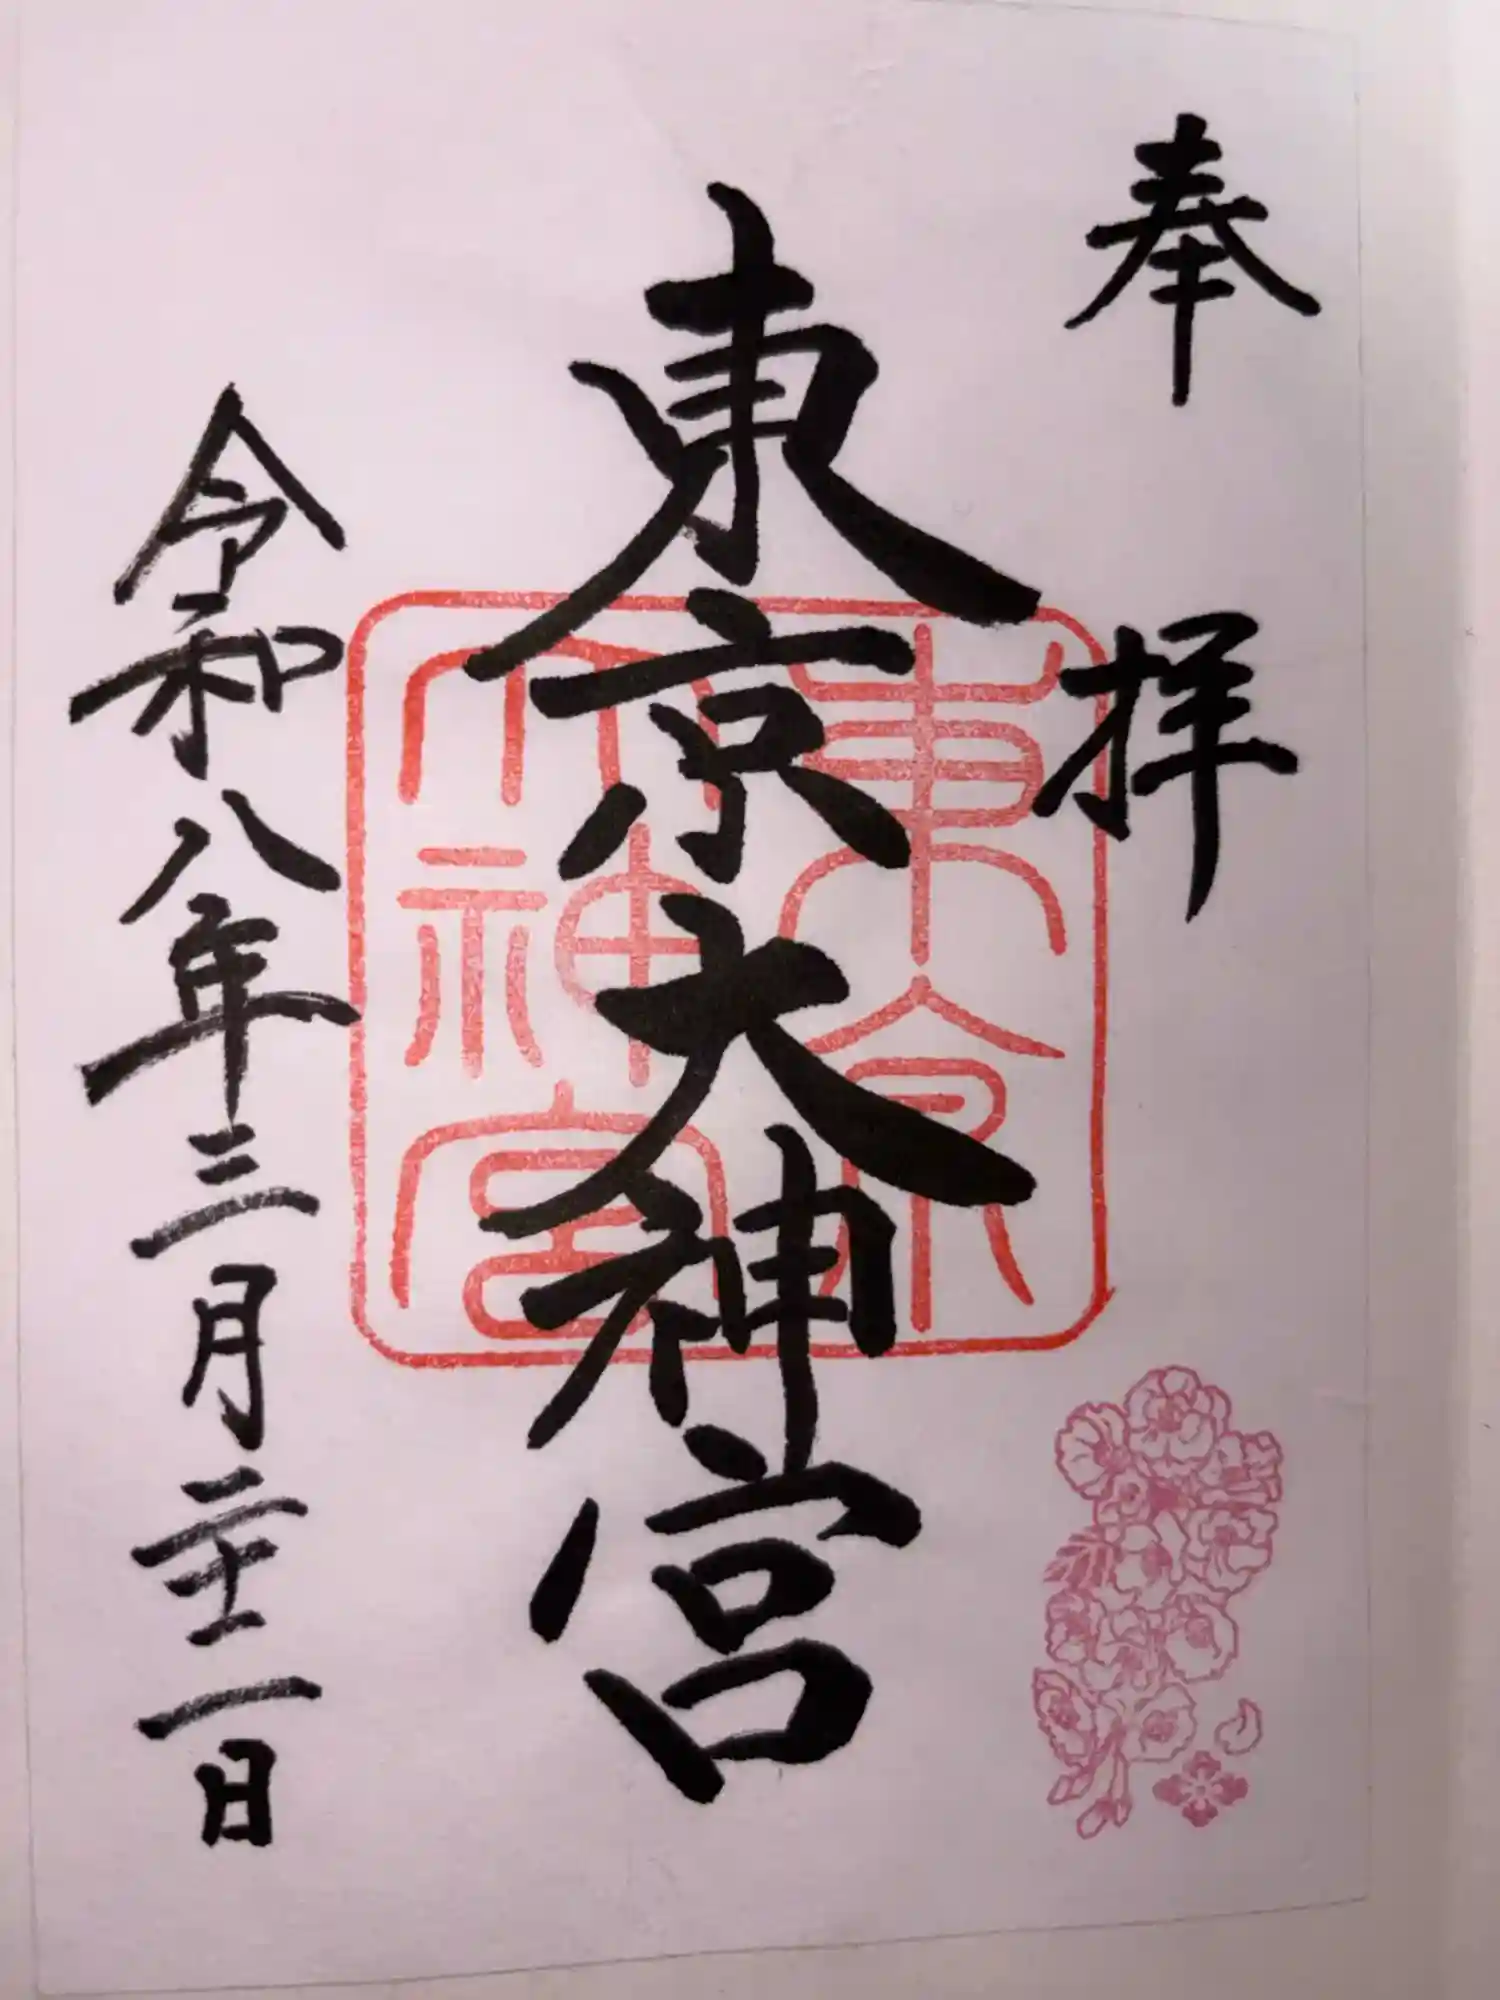 奉拝
東京大神宮
令和八年三月二十二日
東京
大神宮